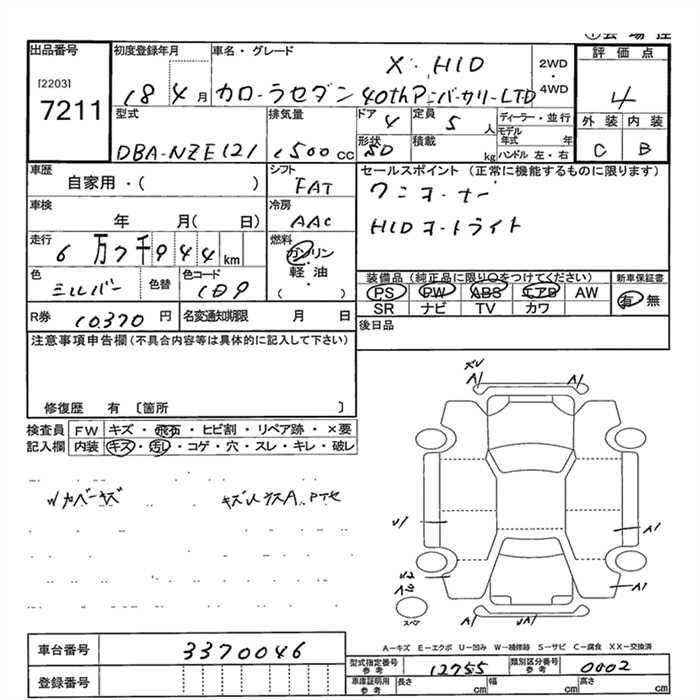 出品番号 初度登録年月 車名・グレード 評価点
[2203] X・HID 2WD
7211 18 4月 カローラセダン 40thアニバーサリーLTD ・4WD 4
型式 排気量 ドア 4 定員 5人 ディーラー・並行 外装 内装
DBA-NZE121 1500cc 形状 SD 積載 kg モデル年式 年 ハンドル 左・右 C B
車歴 シフト セールスポイント (正常に機能するものに限ります)
自家用・( ) FAT ワンオーナー
車検 冷房 HIDヨートライト
年 月( 日) AAC
走行 燃料
6万7千944km ガソリン
色 色替 色コード 軽油 装備品(純正品に限り○をつけてください) 新車保証書
シルバー 1D9 ( ・ ) PS PW ABS エアB AW 有 無
SR ナビ TV カワ
R券 10,370円 名変通知期限 月 日 後日品
注意事項申告欄(不具合内容等は具体的に記入して下さい)
修復歴 有 〔箇所 〕
検査員 FW キズ・飛石・ヒビ割・リペア跡・×要
記入欄 内装 キズ・汚レ・コゲ・穴・スレ・キレ・破レ
Wカバーキズ
A1 A1
U1 A1
A1
スペア UA1
A－キズ E－エクボ U－凹み W－補修跡 S－サビ C－腐食 XX－交換済
車台番号 3370046 型式指定番号 参考 12755 類別区分番号 参考 0002
登録番号 車庫証明用 参考 長さ cm 幅 cm 高さ cm